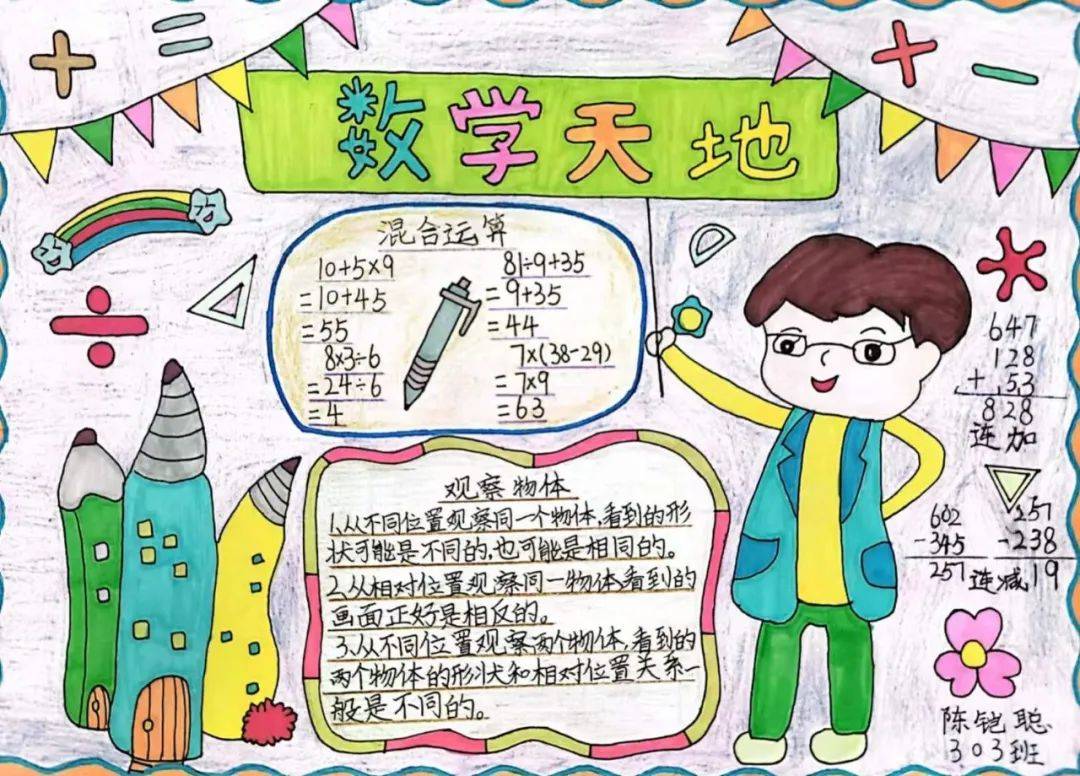 + = + −
数学天地
混合运算
10+5×9
=10+45
=55
81÷9+35
=9+35
=44
8×3÷6
=24÷6
=4
7×(38-29)
=7×9
=63
÷
647
128
+ 53
828
连加
观察物体
1.从不同位置观察同一个物体,看到的形
状可能是不同的,也可能是相同的。
2.从相对位置观察同一物体,看到的
画面正好是相反的。
3.从不同位置观察两个物体,看到的
两个物体的形状和相对位置关系一
般是不同的。
602
-345
257
257
-238
19
连减
陈铠聪
303班